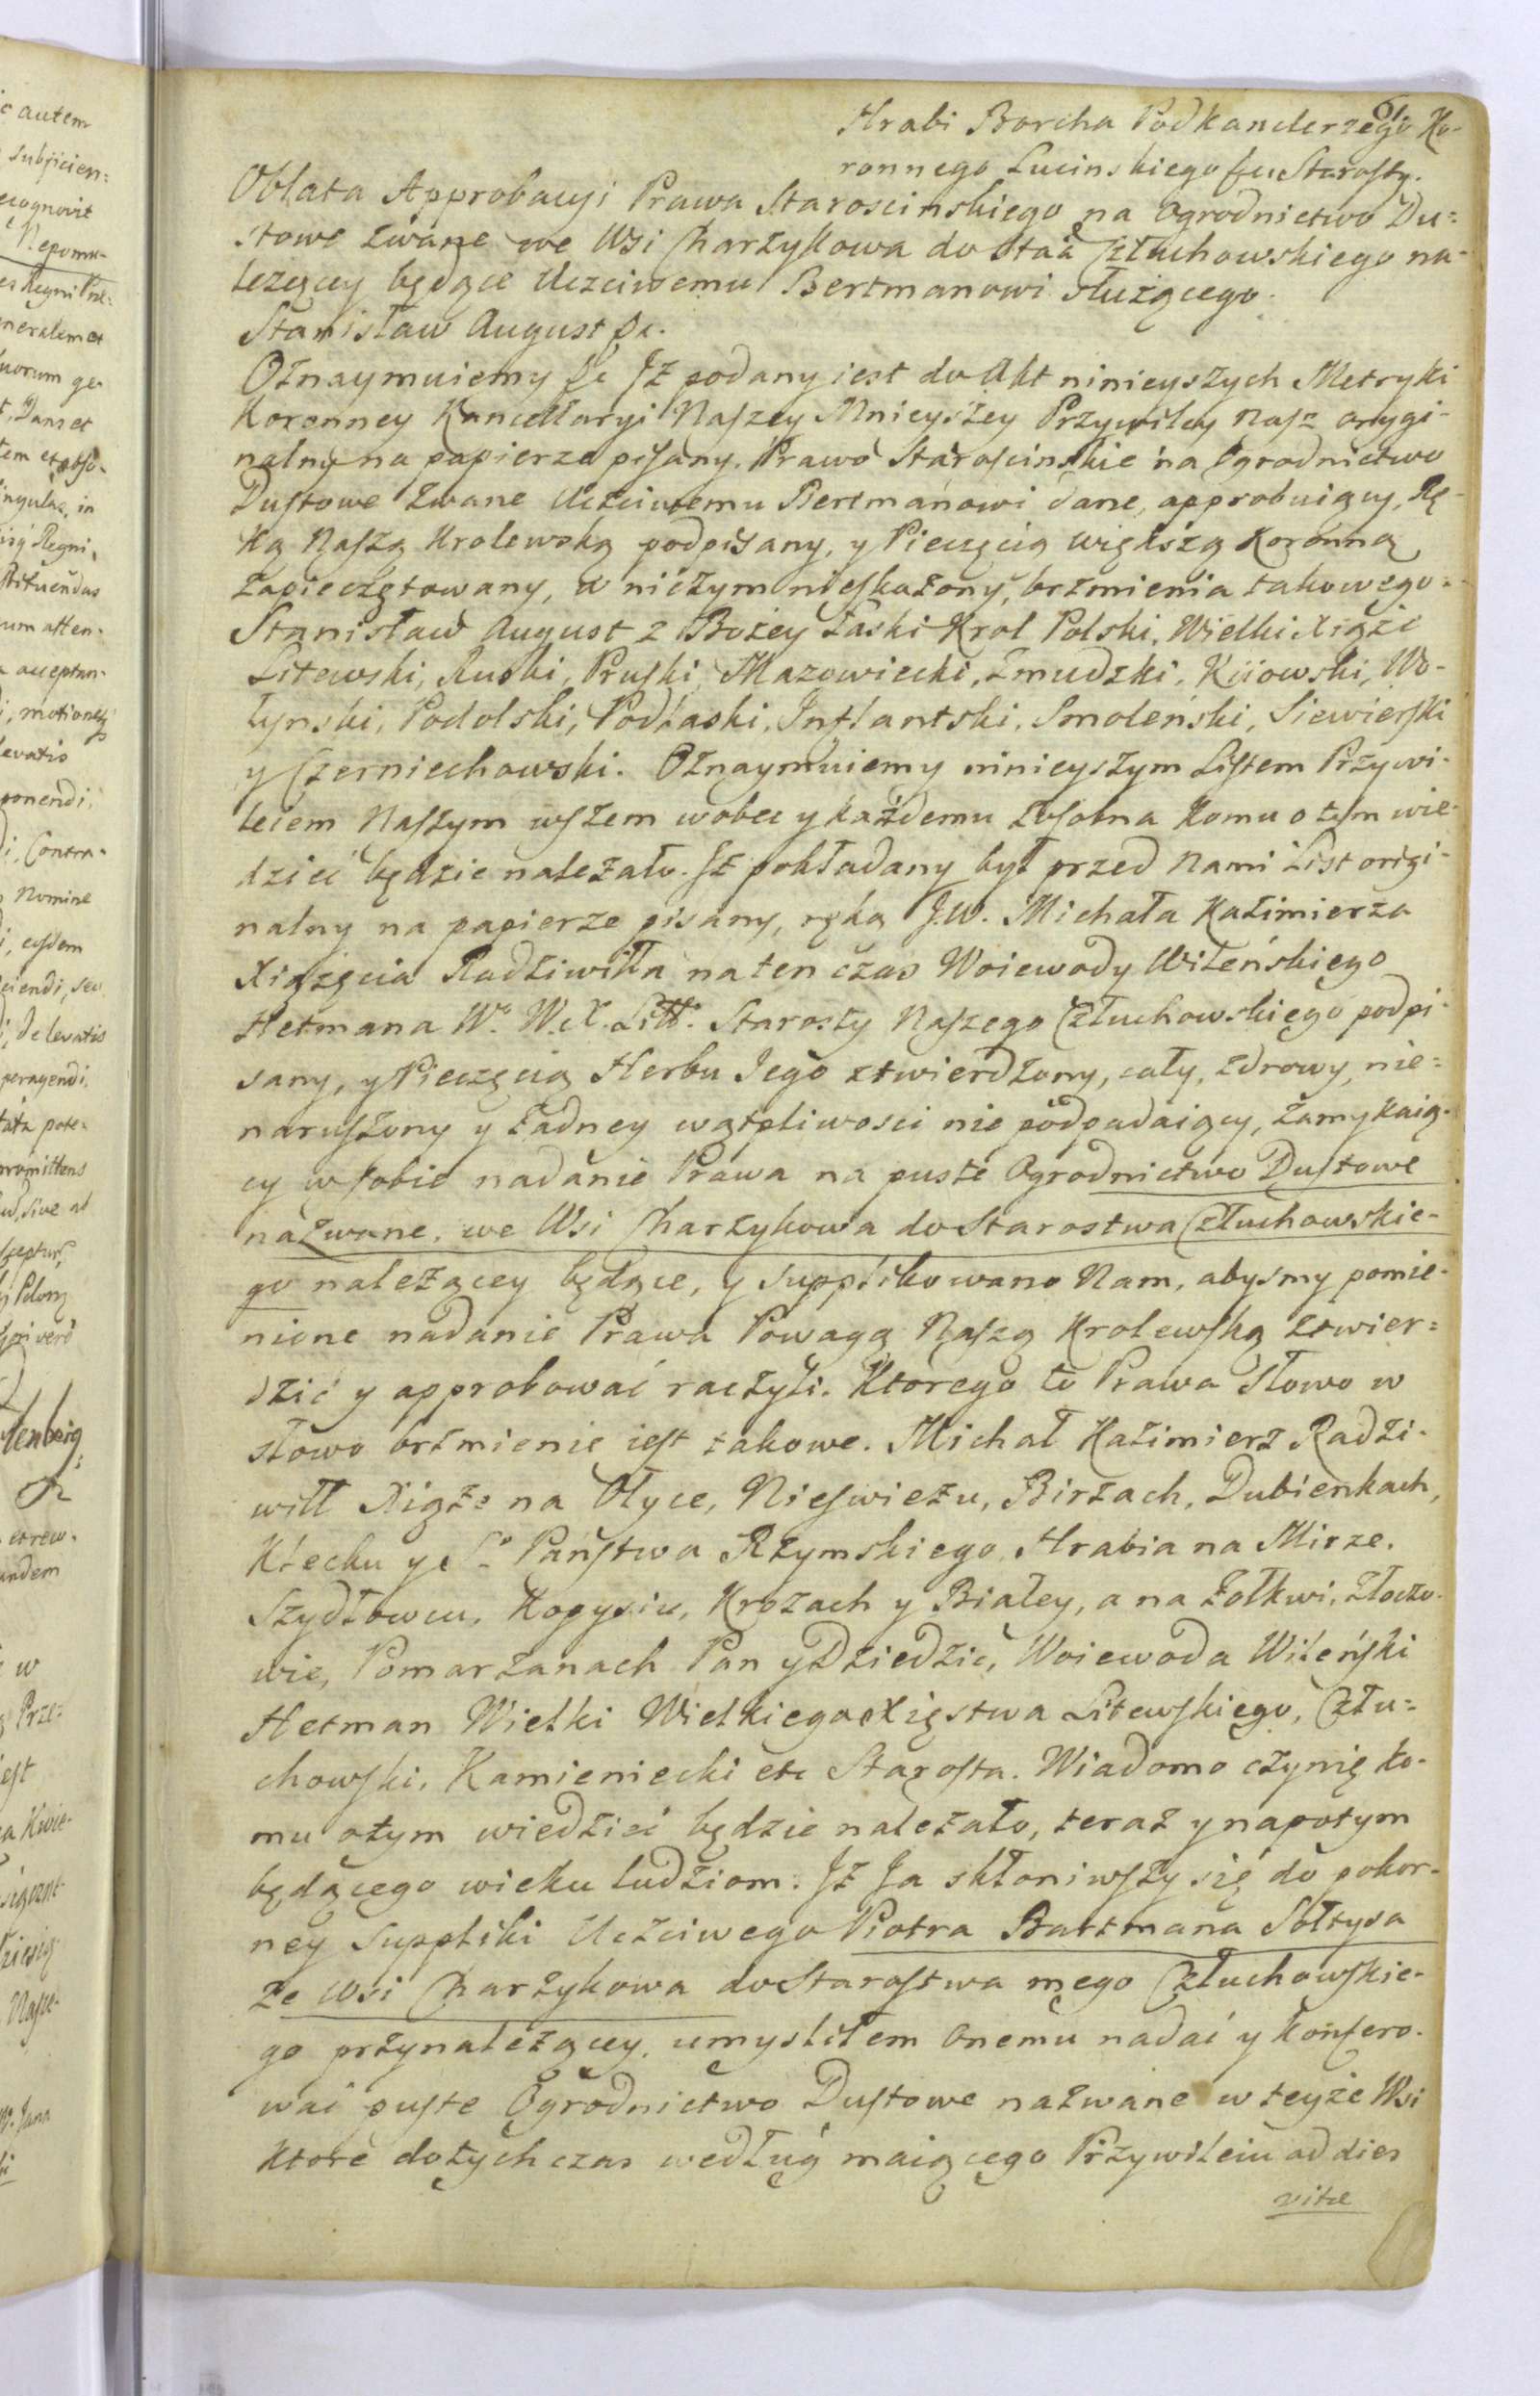 61.
Hrabi Borcha Podkanclerzego Ko-
ronnego Lucinskiego &c Starosty.
Oblata Approbacyi Prawa Staroscinskiego na Ogrodnictwo Du=
stowe zwane we Wsi Charzykowa do Staa Człuchowskiego na-
lezęcey będące Uczciwemu Bertmanowi służącego.
Stanisław August &c.
Oznaymuiemy &c Jż podany iest do Akt ninieyszych Metryki
Koronney Kancellaryi Naszey Mnieyszey Przywiley Nasz orygi-
nalny na papierze pisany, Prawo Staroscinskie na Ogrodnictwo
Dustowe zwane Uczciwemu Bertmanowi dane, approbuiący, Rę-
ką Naszą Krolewską podpisany, y Pieczęcią większą Koronną
zapieczętowany, w niczym nieskażony, brzmienia takowego.
Stanisław August z Bożey Łaski Krol Polski, Wielki Xiąże
Litewski, Ruski, Pruski, Mazowiecki, Zmudzki, Kiiowski, Wo-
łynski, Podolski, Podlaski, Inflantski, Smoleński, Siewierski
y Czerniechowski. Oznaymuiemy ninieyszym Listem Przywi-
leiem Naszym wszem wobec y każdemu zosobna Komu o tym wie-
dzieć będzie należało. Jż pokładany był przed Nami List origi-
nalny na papierze pisany, ręką J.W. Michała Kazimierza
Xiążęcia Radziwiłła na ten czas Woiewody Wileńskiego
Hetmana W. W.X. Litt. Starosty Naszego Człuchowskiego podpi-
sany, y Pieczęcią Herbu Jego stwierdzony, cały, zdrowy, nie=
naruszony y żadney wątpliwosci nie podpadaiący, zamykaią-
cy w sobie nadanie Prawa na puste Ogrodnictwo Dustowe
nazwane, we Wsi Charzykowa do Starostwa Człuchowskie-
go należącey będące, y supplikowano Nam, abysmy pomie-
nione nadanie Prawa Powagą Naszą Krolewską stwier=
dzić y approbować raczyli. Ktorego to Prawa Słowo w
słowo brzmienie iest takowe. Michał Kazimierz Radzi-
wiłł Xiąże na Ołyce, Nieswieżu, Birżach, Dubienkach,
Klecku y S. Państwa Rzymskiego Hrabia na Mirze,
Szydłowcu, Kopysiu, Krozach y Białey, a na Żołkwi, Złoczo-
wie, Pomarzanach Pan y Dziedzic, Woiewoda Wileński
Hetman Wielki Wielkiego Xięstwa Litewskiego, Człu=
chowski, Kamieniecki etc Starosta. Wiadomo czynię ko-
mu otym wiedzieć będzie należało, teraz y napotym
będącego wieku ludziom. Jż Ja skłoniwszy się do pokor-
ney Suppliki Uczciwego Piotra Bartmana Sołtysa
ze Wsi Charzykowa do Starostwa mego Człuchowskie-
go przynależącey, umysliłem Onemu nadać y konfero-
wać puste Ogrodnictwo Dustowe nazwane w teyże Wsi
Ktore dotychczas według maiącego Przywileiu ad dies
vitæ